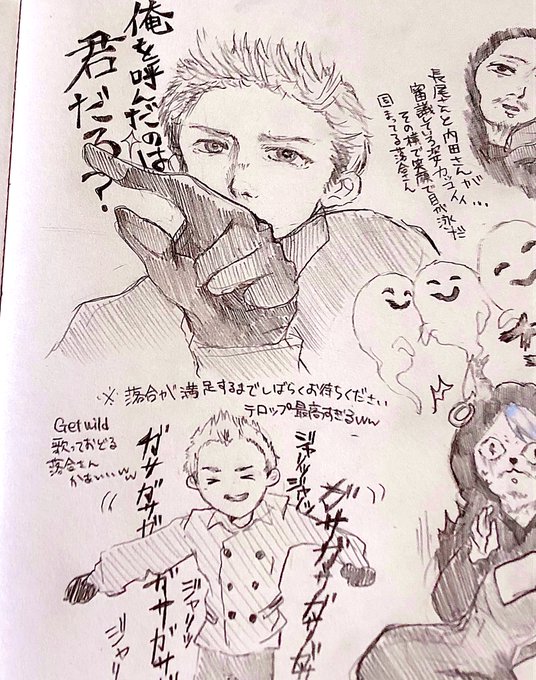 俺を呼んだのは
君だろ?
長尾さんと内田さんが
審議してる姿カッコイイ…
その横で笑顔で目が泳だ
固まってる落合さん
※ 落合が満足するまでしばらくお待ちください
テロップ最高すぎるww
Get wild
歌っておどる
落合さん
かわいいいww
ガサガサガサ
ガサガサ
ジャリッジャリッ
ガサガサガサガサガサ
ジャリッ
ジャリ